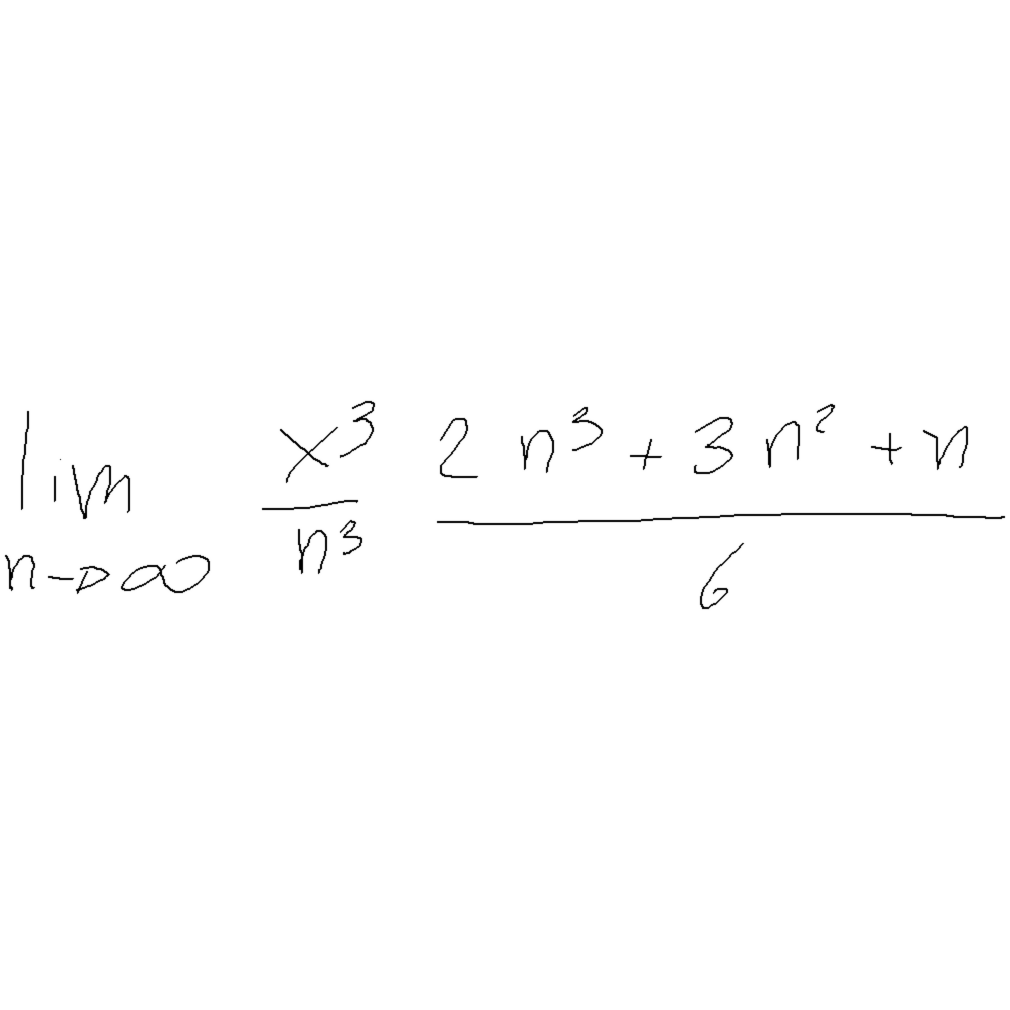 lim x³/n³ (2n³ + 3n² + n)/6
n→∞